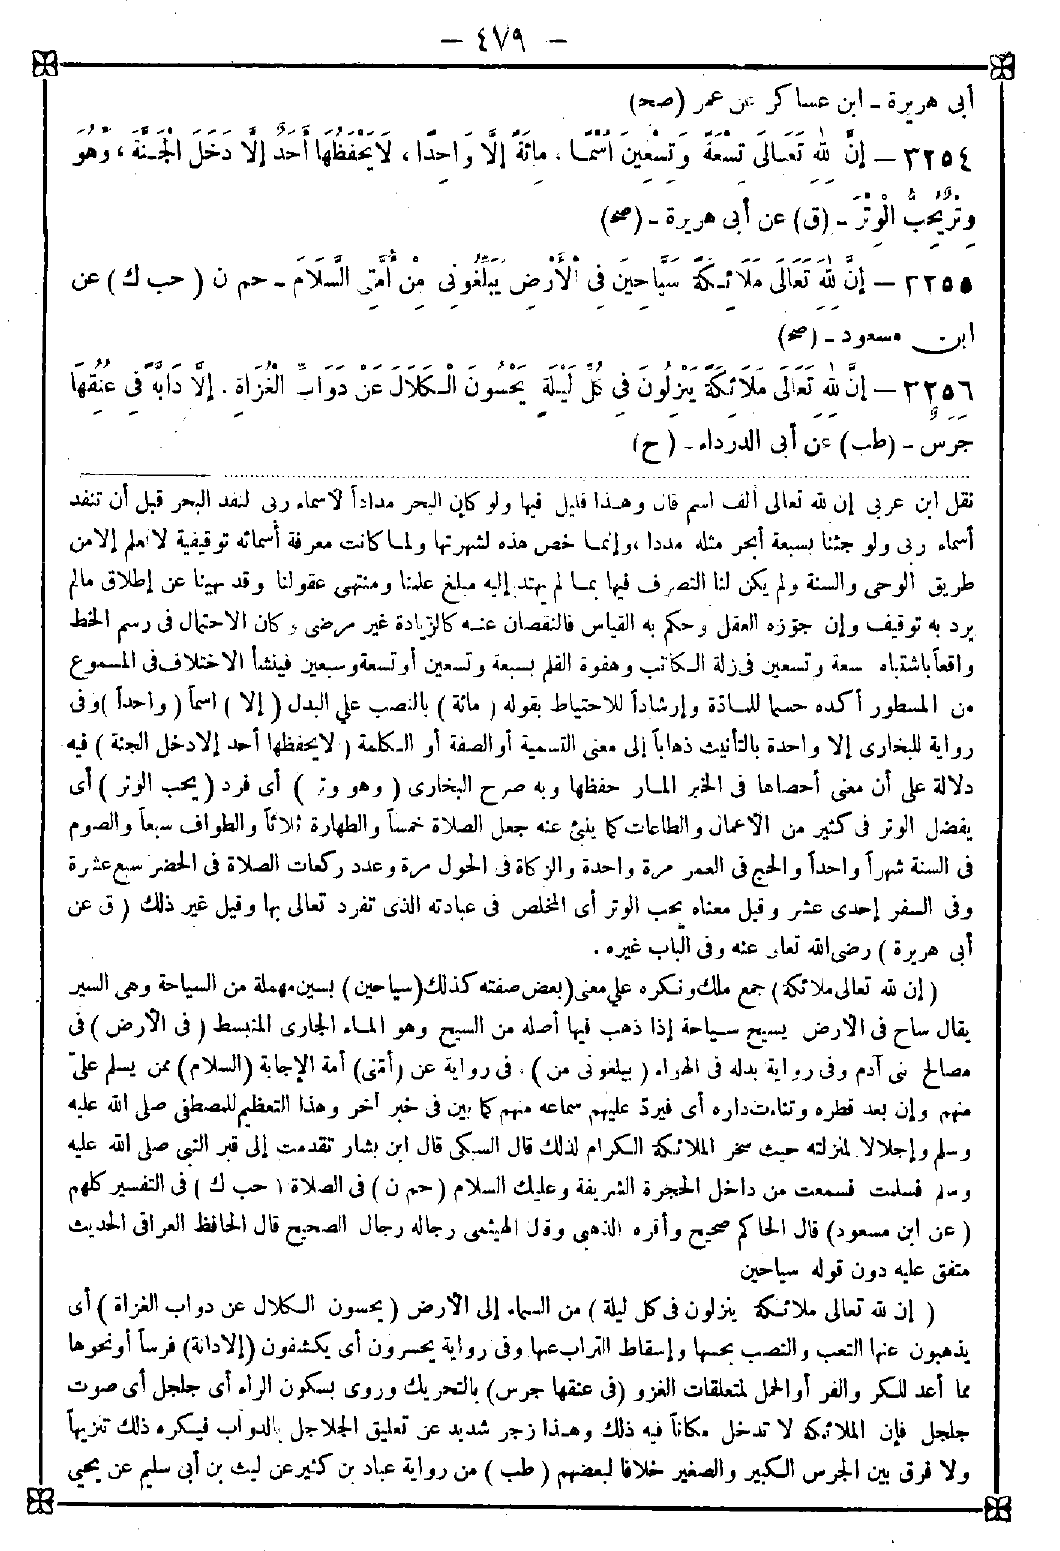 — ٤٧٩ —
أبى هريرة - ابن عساكر عن عمر (صح)
٢٢٥٤ — إِنَّ لِلّٰهِ تَعَالَى تِسْعَةً وَتِسْعِينَ اسْمًا، مِائَةً إِلَّا وَاحِدًا، لَا يَحْفَظُهَا أَحَدٌ إِلَّا دَخَلَ الْجَنَّةَ، وَهُوَ
وِتْرٌ يُحِبُّ الْوِتْرَ - (ق) عن أبى هريرة - (صح)
٢٢٥٥ — إِنَّ لِلّٰهِ تَعَالَى مَلَائِكَةً سَيَّاحِينَ فِى الْأَرْضِ يُبَلِّغُونِى مِنْ أُمَّتِى السَّلَامَ - حم ن (حب ك) عن
ابن مسعود - (صح)
٢٢٥٦ — إِنَّ لِلّٰهِ تَعَالَى مَلَائِكَةً يَنْزِلُونَ فِى كُلِّ لَيْلَةٍ يَحْسُونَ الْكَلَالَ عَنْ دَوَابِّ الْغُزَاةِ، إِلَّا دَابَّةً فِى عُنُقِهَا
جَرَسٌ - (طب) عن أبى الدرداء - (ح)
نقل ابن عربى إن لله تعالى ألف اسم قال وهذا قليل فيها ولو كان البحر مداداً لأسماء ربى لنفد البحر قبل أن تنفد
أسماء ربى ولو جئنا بسبعة أبحر مثله مددا، وإنما خص هذه لشهرتها ولما كانت معرفة أسمائه توقيفية لا تعلم إلا من
طريق الوحى والسنة ولم يكن لنا التصرف فيها بما لم يهتد إليه مبلغ علمنا ومنتهى عقولنا وقد نهينا عن إطلاق مالم
يرد به توقيف وإن جوّزه العقل وحكم به القياس فالنقصان عنه كالزيادة غير مرضى وكان الاحتمال فى رسم الخط
واقعاً باشتباه تسعة وتسعين فى زلة الكاتب وهفوة القلم بسبعة وتسعين أو تسعة وسبعين فينشأ الاختلاف فى المسموع
من المسطور أكده حسما للمادّة وإرشاداً للاحتياط بقوله (مائة) بالنصب على البدل (إلا) اسماً (واحداً) وفى
رواية للبخارى إلا واحدة بالتأنيث ذهاباً إلى معنى التسمية أو الصفة أو الكلمة (لا يحفظها أحد إلا دخل الجنة) فيه
دلالة على أن معنى أحصاها فى الخبر المار حفظها وبه صرح البخارى (وهو وتر) أى فرد (يحب الوتر) أى
يفضل الوتر فى كثير من الأعمال والطاعات كما ينبئ عنه جعل الصلاة خمساً والطهارة ثلاثاً والطواف سبعاً والصوم
فى السنة شهراً واحداً والحج فى العمر مرة واحدة والزكاة فى الحول مرة وعدد ركعات الصلاة فى الحضر سبع عشرة
وفى السفر إحدى عشر وقيل معناه يحب الوتر أى المخلص فى عبادته الذى تفرد تعالى بها وقيل غير ذلك (ق عن
أبى هريرة) رضى الله تعالى عنه وفى الباب غيره.
(إن لله تعالى ملائكة) جمع ملك ونكره على معنى (بعض صفته كذلك (سياحين) بسين مهملة من السياحة وهى السير
يقال ساح فى الأرض يسيح سياحة إذا ذهب فيها أصله من السيح وهو الماء الجارى المنبسط (فى الأرض) فى
مصالح بنى آدم وفى رواية بدله فى الهواء (يبلغونى من)، فى رواية عن (أمتى) أمة الإجابة (السلام) ممن يسلم علىّ
منهم وإن بعد قطره وتناءت داره أى فيردّ عليهم سماعه منهم كما بين فى خبر آخر وهذا التعظيم للمصطفى صلى الله عليه
وسلم وإجلالا لمنزلته حيث سخر الملائكة الكرام لذلك قال السبكى قال ابن بشار تقدمت إلى قبر النبى صلى الله عليه
وسلم فسلمت فسمعت من داخل الحجرة الشريفة وعليك السلام (حم ن) فى الصلاة (حب ك) فى التفسير كلهم
(عن ابن مسعود) قال الحاكم صحيح وأقره الذهبى وقال الهيثمى رجاله رجال الصحيح قال الحافظ العراقى الحديث
متفق عليه دون قوله سياحين
(إن لله تعالى ملائكة ينزلون فى كل ليلة) من السماء إلى الأرض (يحسون الكلال عن دواب الغزاة) أى
يذهبون عنها التعب والنصب بحسها وإسقاط التراب عنها وفى رواية يحسرون أى يكشفون (إلا دابة) فرساً أو نحوها
مما أعد للكر والفر أو الحمل لمتعلقات الغزو (فى عنقها جرس) بالتحريك وروى بسكون الراء أى جلجل أى صوت
جلجل فإن الملائكة لا تدخل مكاناً فيه ذلك وهذا زجر شديد عن تعليق الجلاجل بالدواب فيكره ذلك تنزيهاً
ولا فرق بين الجرس الكبير والصغير خلافا لبعضهم (طب) من رواية عباد بن كثير عن ليث بن أبى سليم عن يحيى